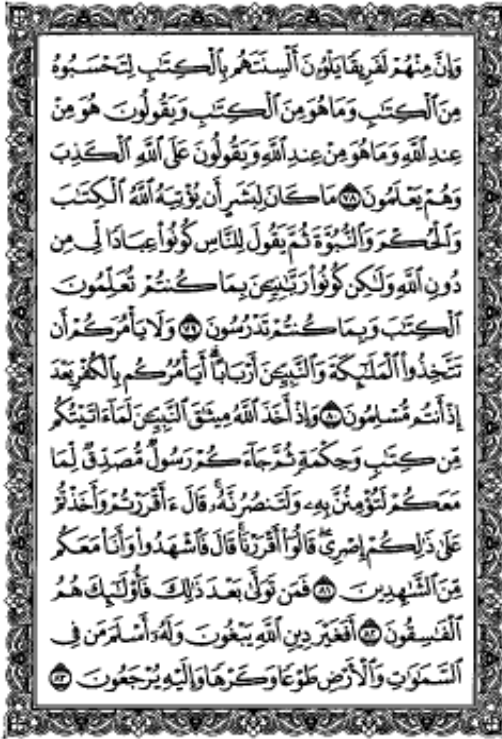 وَإِنَّ مِنْهُمْ لَفَرِيقًا يَلْوُۥنَ أَلْسِنَتَهُم بِالْكِتَٰبِ لِتَحْسَبُوهُ
مِنَ الْكِتَٰبِ وَمَا هُوَ مِنَ الْكِتَٰبِ وَيَقُولُونَ هُوَ مِنْ
عِندِ اللَّهِ وَمَا هُوَ مِنْ عِندِ اللَّهِ وَيَقُولُونَ عَلَى اللَّهِ الْكَذِبَ
وَهُمْ يَعْلَمُونَ ٧٨ مَا كَانَ لِبَشَرٍ أَن يُؤْتِيَهُ اللَّهُ الْكِتَٰبَ
وَالْحُكْمَ وَالنُّبُوَّةَ ثُمَّ يَقُولَ لِلنَّاسِ كُونُوا۟ عِبَادًا لِّى مِن
دُونِ اللَّهِ وَلَٰكِن كُونُوا۟ رَبَّٰنِيِّـۧنَ بِمَا كُنتُمْ تُعَلِّمُونَ
الْكِتَٰبَ وَبِمَا كُنتُمْ تَدْرُسُونَ ٧٩ وَلَا يَأْمُرَكُمْ أَن
تَتَّخِذُوا۟ الْمَلَٰٓئِكَةَ وَالنَّبِيِّـۧنَ أَرْبَابًا ۗ أَيَأْمُرُكُم بِالْكُفْرِ بَعْدَ
إِذْ أَنتُم مُّسْلِمُونَ ٨٠ وَإِذْ أَخَذَ اللَّهُ مِيثَٰقَ النَّبِيِّـۧنَ لَمَآ ءَاتَيْتُكُم
مِّن كِتَٰبٍ وَحِكْمَةٍ ثُمَّ جَآءَكُمْ رَسُولٌ مُّصَدِّقٌ لِّمَا
مَعَكُمْ لَتُؤْمِنُنَّ بِهِۦ وَلَتَنصُرُنَّهُۥ ۚ قَالَ ءَأَقْرَرْتُمْ وَأَخَذْتُمْ
عَلَىٰ ذَٰلِكُمْ إِصْرِى ۖ قَالُوٓا۟ أَقْرَرْنَا ۚ قَالَ فَاشْهَدُوا۟ وَأَنَا۠ مَعَكُم
مِّنَ الشَّٰهِدِينَ ٨١ فَمَن تَوَلَّىٰ بَعْدَ ذَٰلِكَ فَأُو۟لَٰٓئِكَ هُمُ
الْفَٰسِقُونَ ٨٢ أَفَغَيْرَ دِينِ اللَّهِ يَبْغُونَ وَلَهُۥٓ أَسْلَمَ مَن فِى
السَّمَٰوَٰتِ وَالْأَرْضِ طَوْعًا وَكَرْهًا وَإِلَيْهِ يُرْجَعُونَ ٨٣